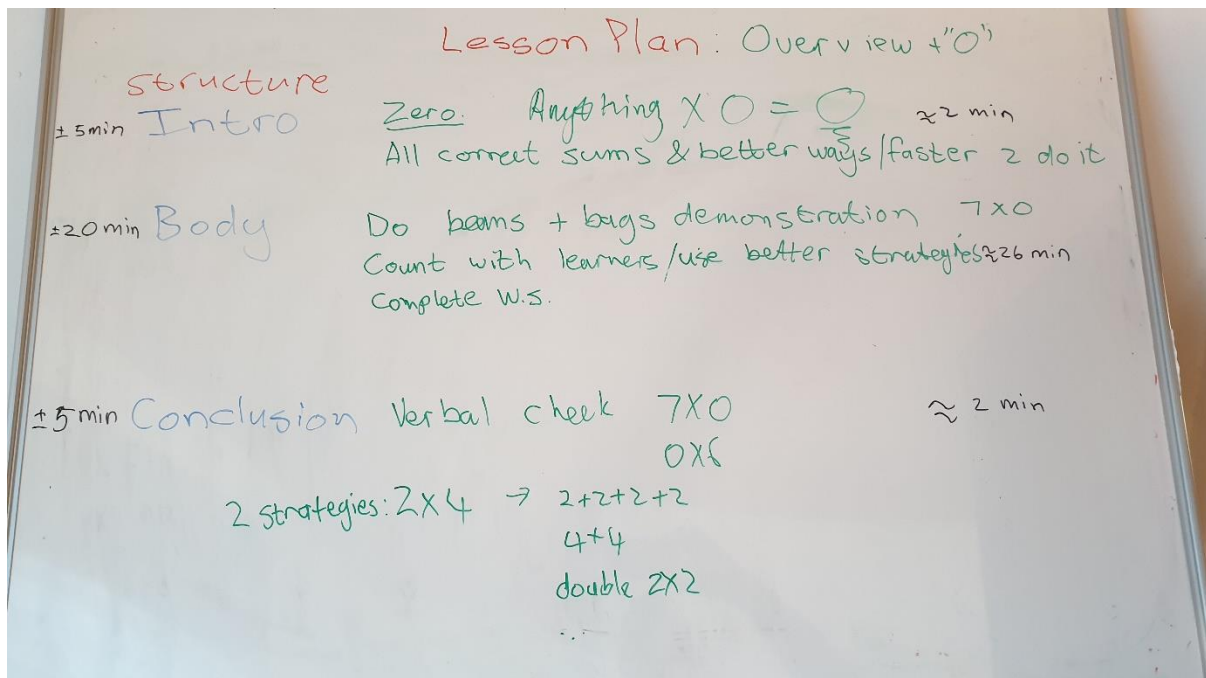 Lesson Plan: Overview + "0"
structure
± 5min Intro Zero: Anything X 0 = 0 ≈2 min
All correct sums & better ways/faster 2 do it
±20min Body Do beans + bags demonstration 7x0
Count with learners/use better strategies ≈26 min
Complete W.S.
±5 min Conclusion Verbal check 7X0 ≈ 2 min
0X6
2 strategies: 2X4 → 2+2+2+2
4+4
double 2X2
...